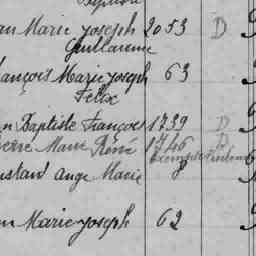 an Marie Joseph 2053 D
Guillaume
rançois Marie Joseph 63
Félix
n Baptiste François 1739 D
erre Marie René 1746 D
nstant Ange Marie 8
an Marie Joseph 62